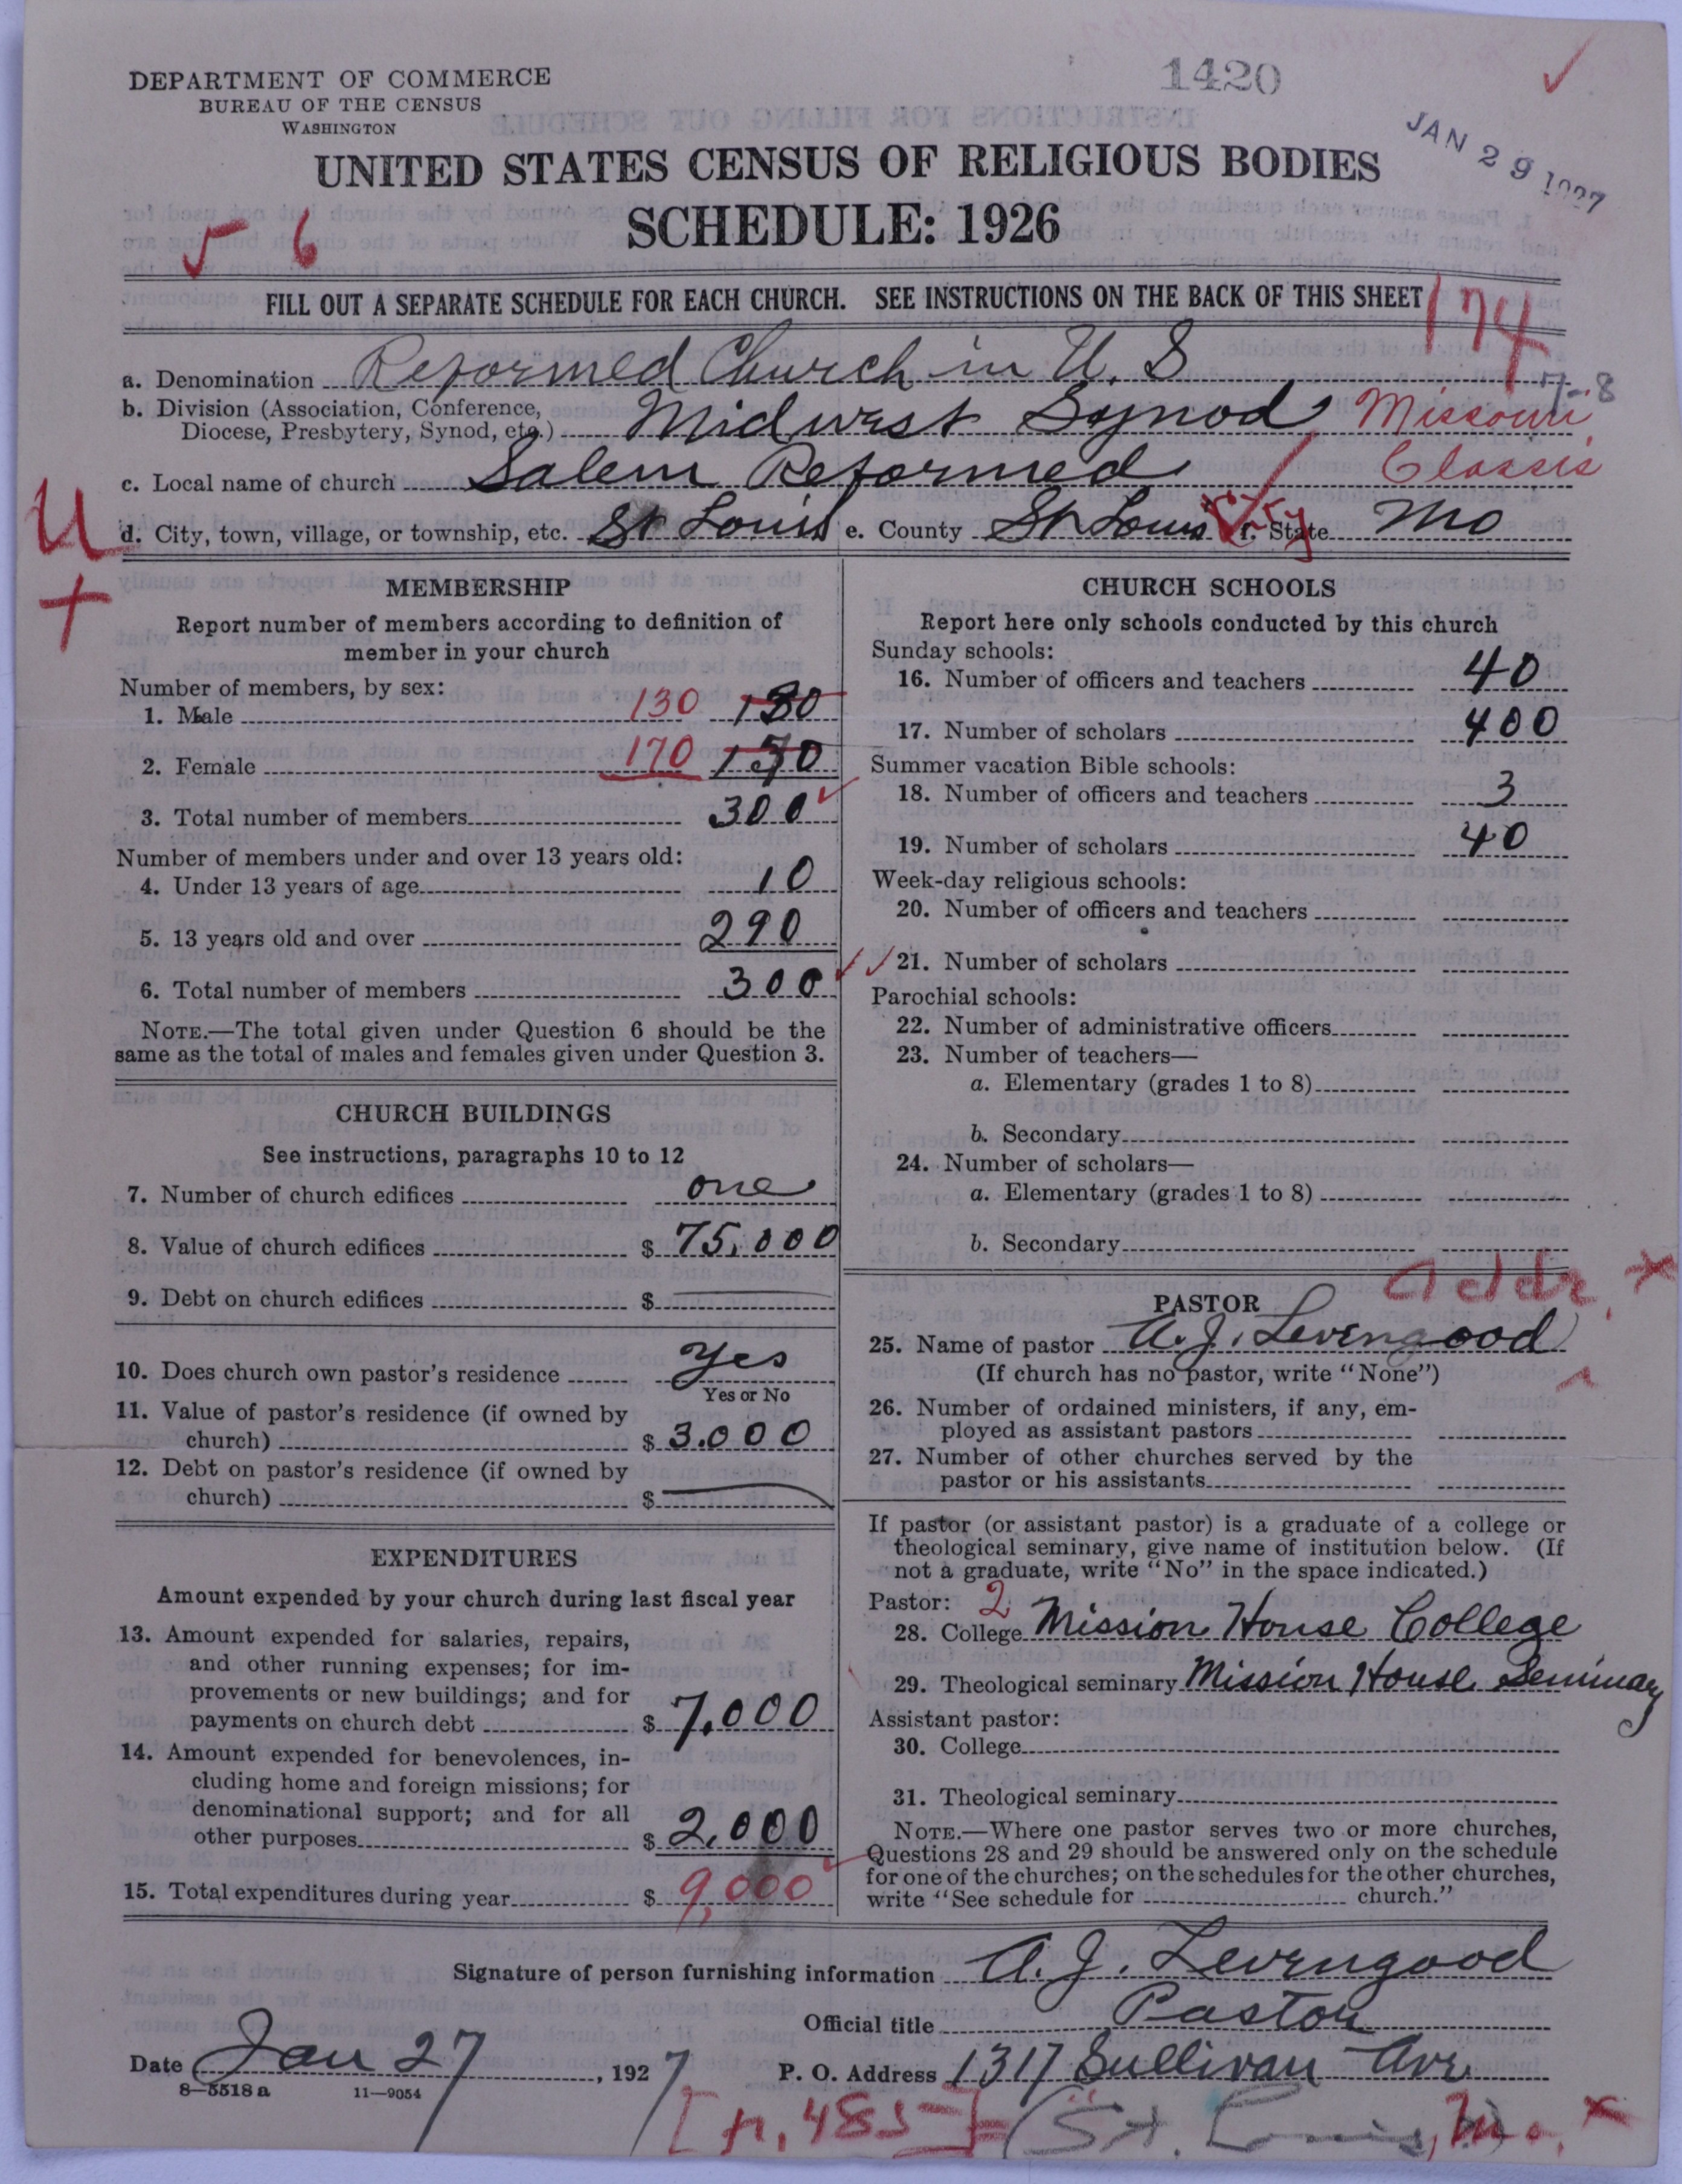 1420
DEPARTMENT OF COMMERCE
BUREAU OF THE CENSUS
WASHINGTON
JAN 29 1927
UNITED STATES CENSUS OF RELIGIOUS BODIES
SCHEDULE: 1926
5 6
FILL OUT A SEPARATE SCHEDULE FOR EACH CHURCH. SEE INSTRUCTIONS ON THE BACK OF THIS SHEET
174
7-8
a. Denomination Reformed Church in U. S
b. Division (Association, Conference, Diocese, Presbytery, Synod, etc.) Midwest Synod, Missouri
Classis
c. Local name of church Salem Reformed
U
d. City, town, village, or township, etc. St Louis e. County St Louis City f. State Mo
+
MEMBERSHIP
Report number of members according to definition of
member in your church
Number of members, by sex:
1. Male 130
2. Female 170
3. Total number of members 300
Number of members under and over 13 years old:
4. Under 13 years of age 10
5. 13 years old and over 290
6. Total number of members 300
NOTE.—The total given under Question 6 should be the
same as the total of males and females given under Question 3.
CHURCH BUILDINGS
See instructions, paragraphs 10 to 12
7. Number of church edifices one
8. Value of church edifices $ 75,000
9. Debt on church edifices $
10. Does church own pastor's residence Yes
Yes or No
11. Value of pastor's residence (if owned by
church) $ 3.000
12. Debt on pastor's residence (if owned by
church) $
EXPENDITURES
Amount expended by your church during last fiscal year
13. Amount expended for salaries, repairs,
and other running expenses; for im-
provements or new buildings; and for
payments on church debt $ 7,000
14. Amount expended for benevolences, in-
cluding home and foreign missions; for
denominational support; and for all
other purposes $ 2,000
15. Total expenditures during year $ 9,000
CHURCH SCHOOLS
Report here only schools conducted by this church
Sunday schools:
16. Number of officers and teachers 40
17. Number of scholars 400
Summer vacation Bible schools:
18. Number of officers and teachers 3
19. Number of scholars 40
Week-day religious schools:
20. Number of officers and teachers
21. Number of scholars
Parochial schools:
22. Number of administrative officers
23. Number of teachers—
a. Elementary (grades 1 to 8)
b. Secondary
24. Number of scholars—
a. Elementary (grades 1 to 8)
b. Secondary
addr. x
PASTOR
25. Name of pastor A. J. Levengood
(If church has no pastor, write "None")
26. Number of ordained ministers, if any, em-
ployed as assistant pastors
27. Number of other churches served by the
pastor or his assistants
If pastor (or assistant pastor) is a graduate of a college or
theological seminary, give name of institution below. (If
not a graduate, write "No" in the space indicated.)
Pastor: 2
28. College Mission House College
29. Theological seminary Mission House Seminary
Assistant pastor:
30. College
31. Theological seminary
NOTE.—Where one pastor serves two or more churches,
Questions 28 and 29 should be answered only on the schedule
for one of the churches; on the schedules for the other churches,
write "See schedule for church."
Signature of person furnishing information A. J. Levengood
Official title Pastor
Date Jan 27, 1927 P. O. Address 1317 Sullivan Ave
8—5518 a 11—9054
[p. 485]= (St. Louis, Mo. x